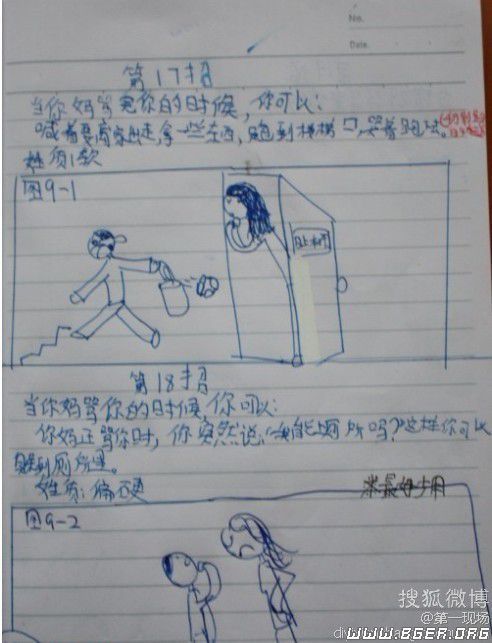 No.
Date.
第17招
当你妈骂你的时候,你可以:
喊着要离家出走,拿一些东西,跑到楼梯口,哭着跑出。
性质:软
图9-1
第18招
当你妈骂你的时候,你可以:
你妈正骂你时,你突然说:“我能上厕所吗?”这样你可以
跑到厕所里。
性质:偏硬 ※最好少用
图9-2
搜狐微博
@第一现场
WWW.BGER.ORG